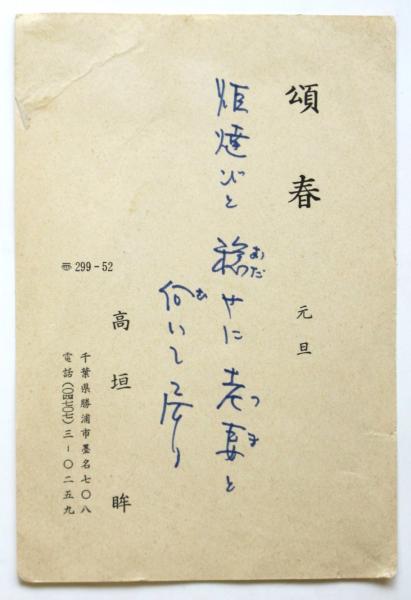 頌春
元旦
炬燵びと 穏やに老妻と
おだ
つま
向いて居り
む
〠 299-52
高垣眸
千葉県勝浦市墨名七〇八
電話(〇四七〇七)三-〇二五九